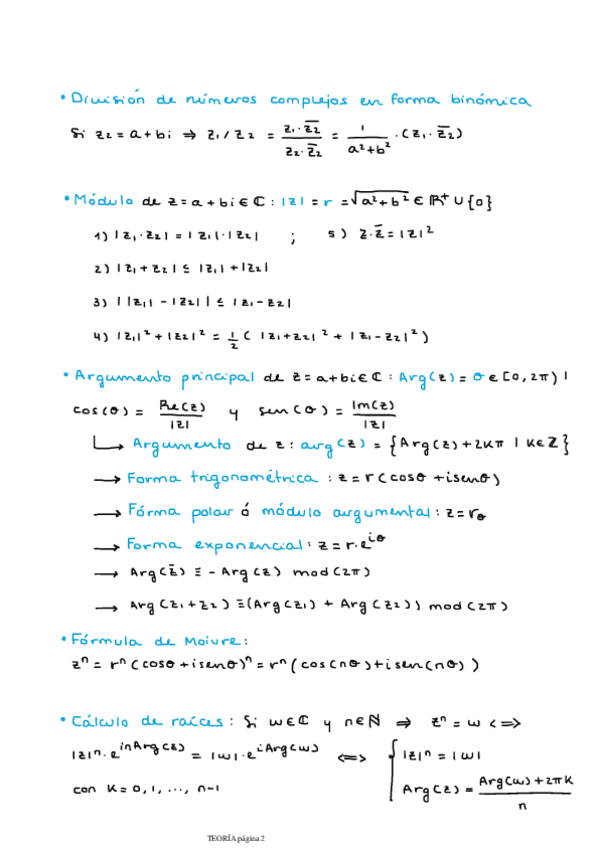 • División de números complejos en forma binómica
Si z₂ = a + bi ⇒ z₁ / z₂ = (z₁·z̄₂)/(z₂·z̄₂) = 1/(a²+b²) · (z₁·z̄₂)
• Módulo de z = a + bi ∈ ℂ : |z| = r = √(a²+b²) ∈ ℝ⁺ ∪ {0}
1) |z₁·z₂| = |z₁|·|z₂| ; 5) z·z̄ = |z|²
2) |z₁ + z₂| ≤ |z₁| + |z₂|
3) | |z₁| - |z₂| | ≤ |z₁ - z₂|
4) |z₁|² + |z₂|² = 1/2 ( |z₁+z₂|² + |z₁-z₂|² )
• Argumento principal de z = a + bi ∈ ℂ : Arg(z) = θ ∈ [0, 2π) |
cos(θ) = Re(z)/|z| y sen(θ) = Im(z)/|z|
↳ Argumento de z : arg(z) = {Arg(z) + 2kπ | k ∈ ℤ}
→ Forma trigonométrica : z = r (cosθ + isenθ)
→ Fórma polar ó módulo argumental : z = r_θ
→ Forma exponencial : z = r·e^{iθ}
→ Arg(z̄) ≡ - Arg(z) mod(2π)
→ Arg(z₁+z₂) ≡ (Arg(z₁) + Arg(z₂)) mod(2π)
• Fórmula de Moivre :
zⁿ = rⁿ (cosθ + isenθ)ⁿ = rⁿ (cos(nθ) + isen(nθ))
• Cálculo de raíces : Si w ∈ ℂ y n ∈ ℕ ⇒ zⁿ = w <=>
|z|ⁿ · e^{inArg(z)} = |w| · e^{iArg(w)} <=> { |z|ⁿ = |w|
Arg(z) = (Arg(w) + 2πk)/n
con k = 0, 1, ..., n-1
TEORÍA página 2